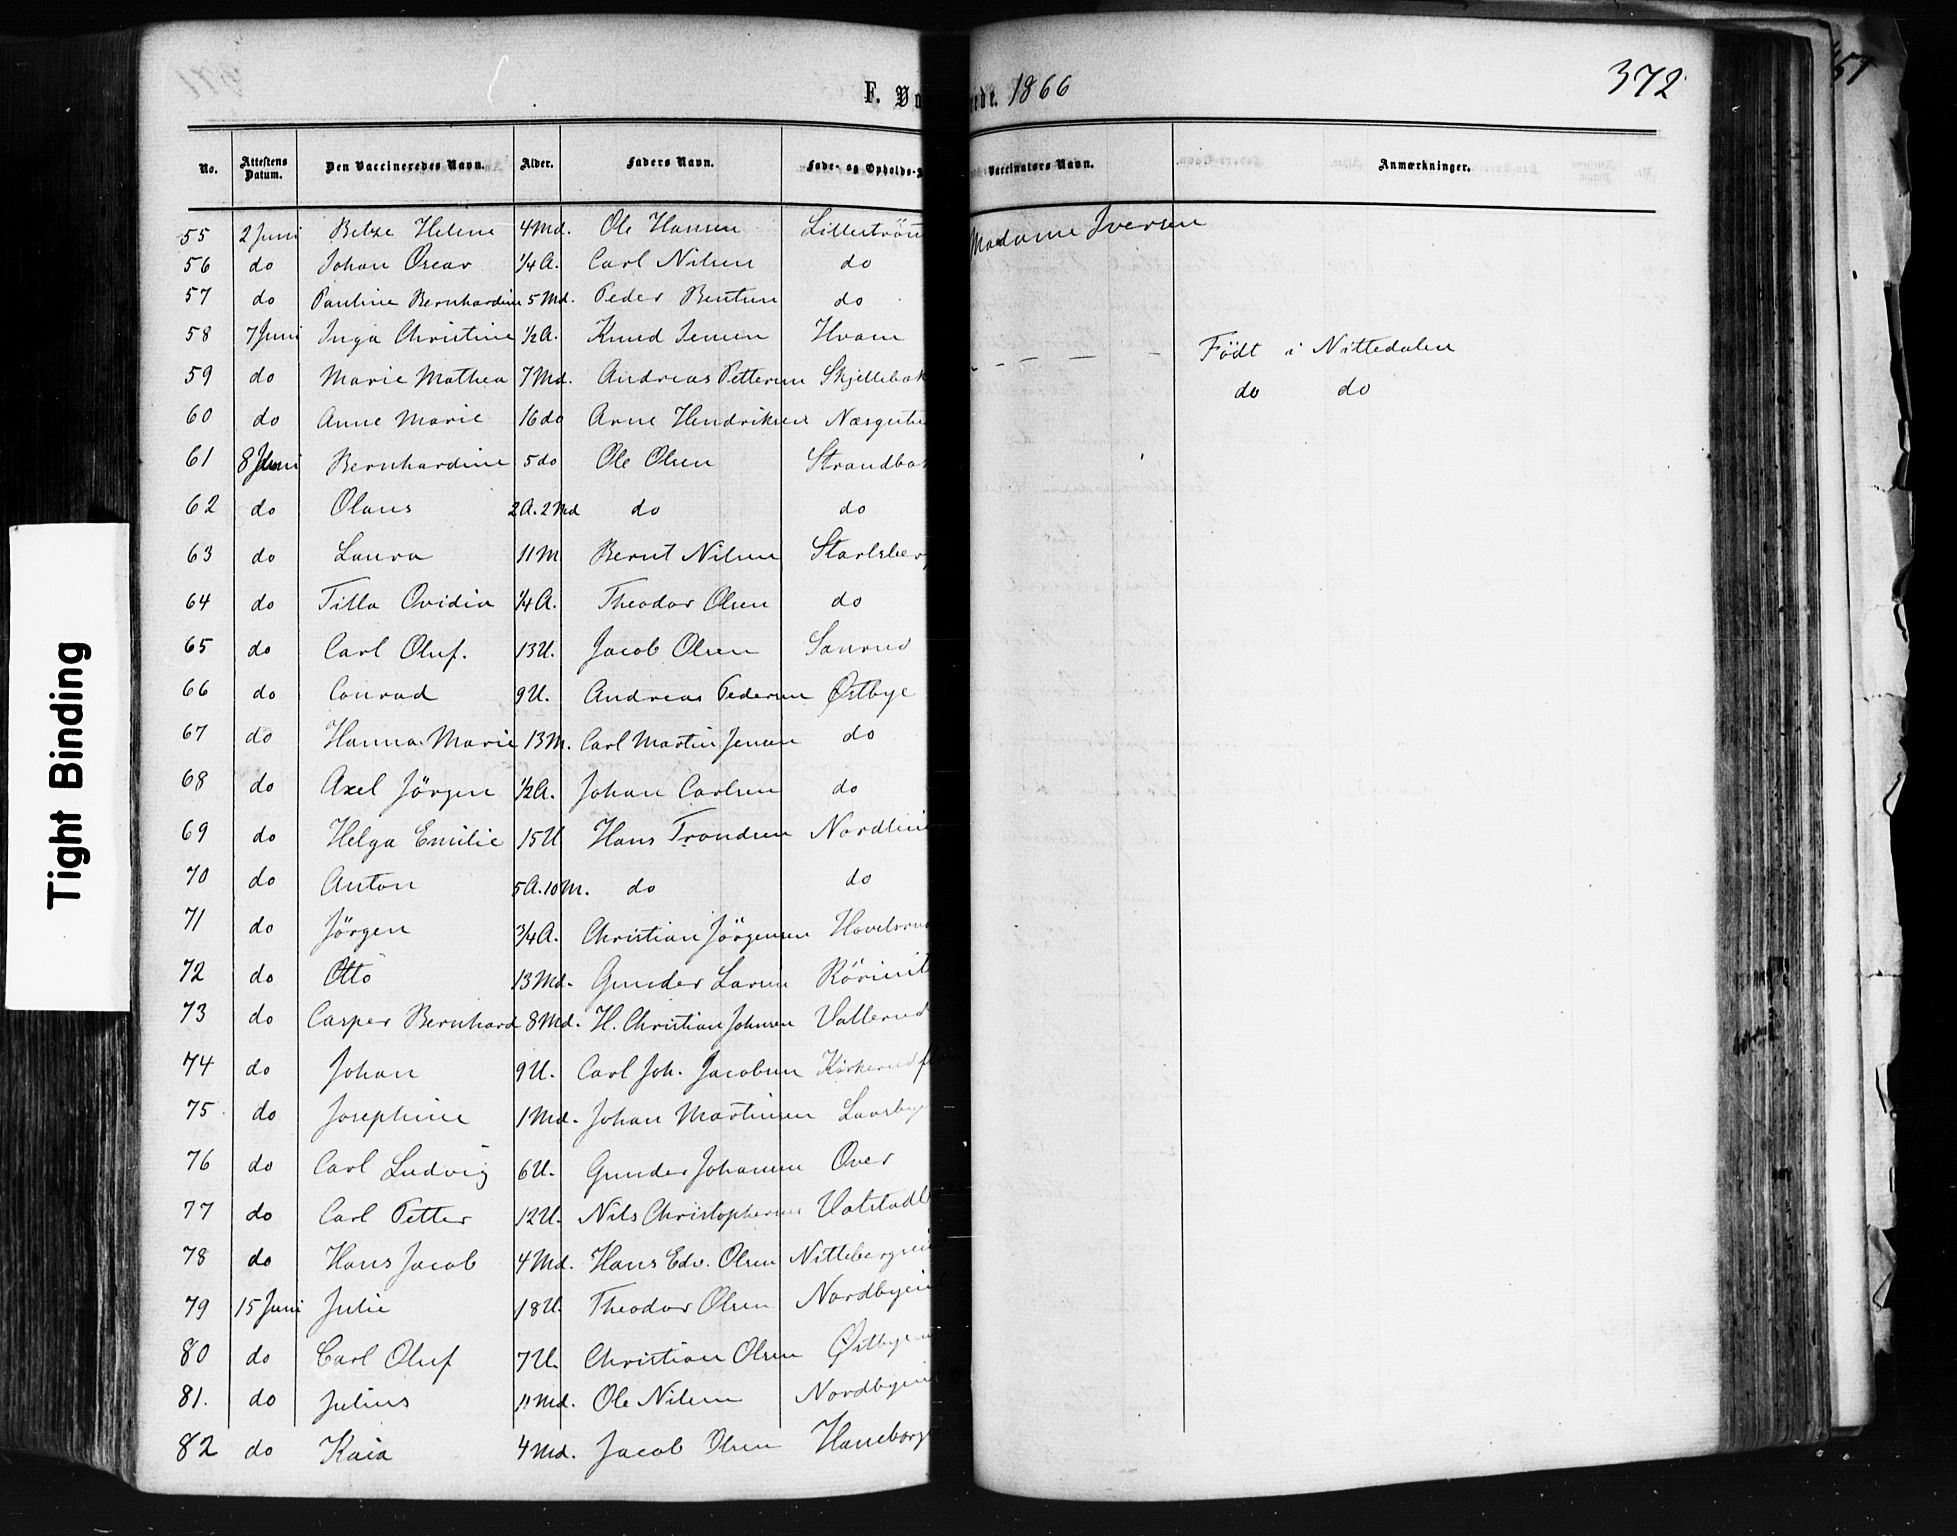 F. Va
ede. 1866
372
No. Attestens Datum. Den Vaccineredes Navn. Alder. Faders Navn. Føde- og Opholds- Vaccinators Navn. Anmærkninger.
55 2 Juni Betze Heline 4 Md. Ole Hansen Lillestrøm Madame Iversen
56 do Johan Oscar 1/4 A. Carl Nilsen do
57 do Pauline Bernhardine 5 Md. Peder Bentsen do
58 7 Juni Inga Christine 1/2 A. Knud Jensen Hvam - - - - Födt i Nittedalen
59 do Marie Mathea 7 Md. Andreas Pettersen Skjettebak do do
60 do Anne Marie 16 do Arne Hendriksen
61 8 Juni Bernhardine 5 do Ole Olsen Strandbak
62 do Olaus 2 A. 2 Md do do
63 do Laura 11 M Bernt Nilsen Starlsber
64 do Tilla Ovidia 1/4 A. Theodor Olsen do
65 do Carl Oluf. 13 U. Jacob Olsen Sanrud
66 do Conrad 9 U. Andreas Pedersen Østbye
67 do Hanna Marie 13 M. Carl Martin Jensen do
68 do Axel Jörgen 1/2 A. Johan Carlsen do
69 do Helga Emilie 15 U Hans Trondsen Nordlie
70 do Anton 5 A. 10 M. do do
71 do Jörgen 3/4 A. Christian Jörgensen
72 do Otto 13 Md. Gunder Larsen
73 do Casper Bernhard 8 Md. H. Christian Johnsen Vallerud
74 do Johan 9 U. Carl Joh. Jacobsen Kirkerud
75. do Josephine 1 Md. Johan Martinsen Laasby
76 do Carl Ludvig 6 U. Gunder Johansen Over
77 do Carl Petter 12 U. Nils Christophersen Valstad
78 do Hans Jacob 4 Md. Hans Edv. Olsen Nitteberg
79 15 Juni Julie 18 U Theodor Olsen Nordbyei
80 do Carl Oluf 7 U. Christian Olsen Østbye
81. do Julius 11 Md. Ole Nilsen Nordbyei
82 do Kaia 4 Md. Jacob Olsen Haneborg
Tight Binding